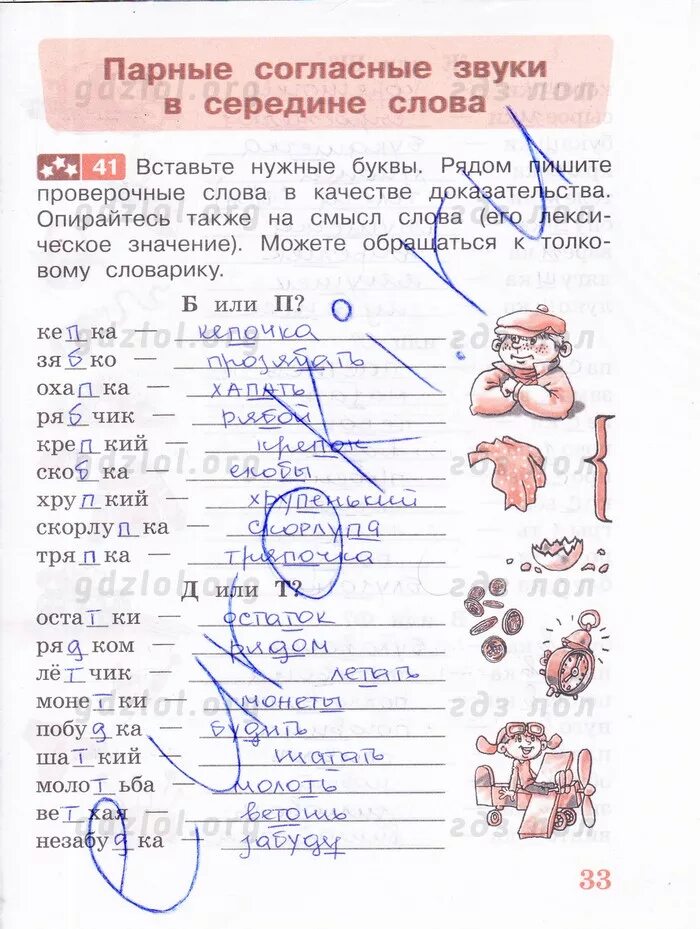 Парные согласные звуки
в середине слова
41 Вставьте нужные буквы. Рядом пишите
проверочные слова в качестве доказательства.
Опирайтесь также на смысл слова (его лекси-
ческое значение). Можете обращаться к толко-
вому словарику.
Б или П?
кепка — кепочка
зябко — прозябать
охапка — хапать
рябчик — рябой
крепкий — крепок
скобка — скобы
хрупкий — хрупенький
скорлупка — скорлупа
тряпка — тряпочка
Д или Т?
остатки — остаток
рядком — рядом
лётчик — летать
монетки — монеты
побудка — будить
шаткий — шатать
молотьба — молоть
ветхая — ветошь
незабудка — забуду
33
gdzlol.org гдз лол